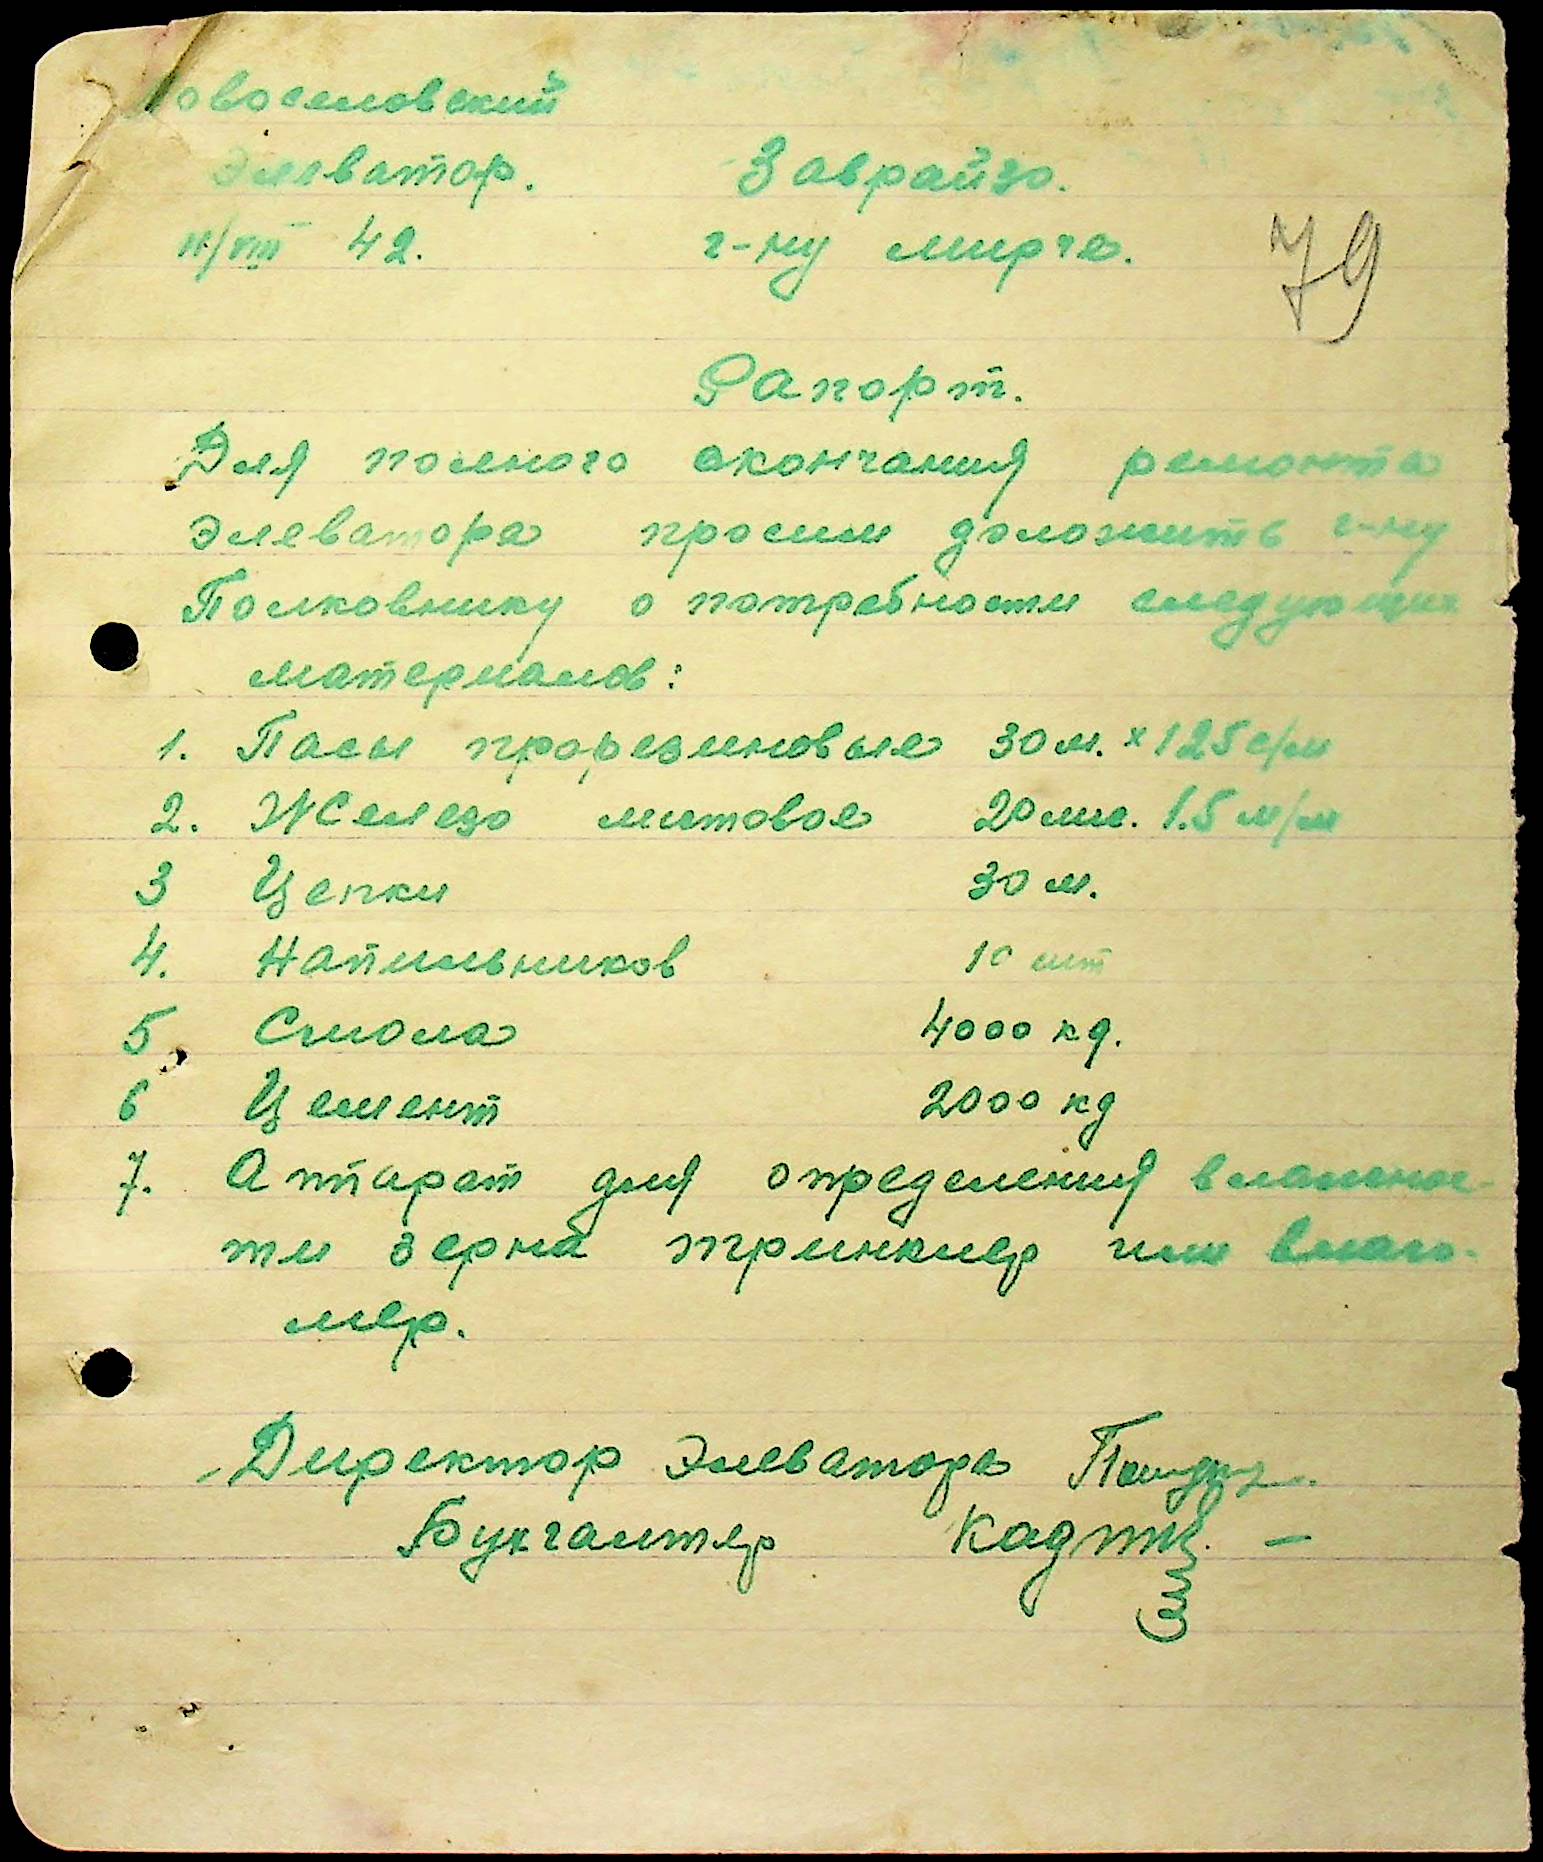 Новоселовский
Элеватор. Заврайзо.
42. г-ну мирче.
79
Рапорт.
Для полного окончания ремонта
элеватора просим доложить г-ну
Полковнику о потребности следующих
материалов:
1. Пасы прорезиновые 30 м. x 125 с/м
2. Железо литовое 20 лис. 1.5 м/м
3 Цепки 30 м.
4. Напильников 10 шт
5 Смола 4000 кg.
6 Цемент 2000 кg
7. Аппарат для определения влажнос-
ти зерна тринкиер или влаго-
мер.
Директор Элеватора
Бухгалтер